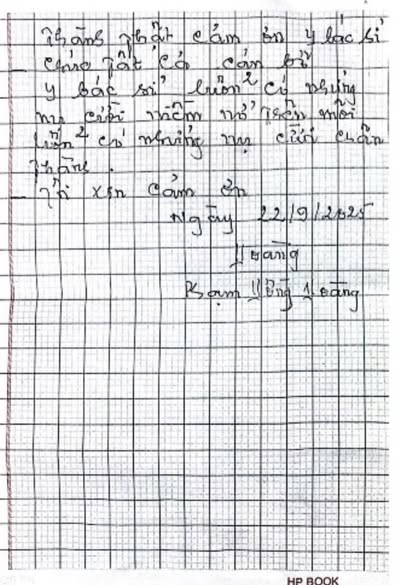 Thành thật cảm ơn y bác sĩ
chúc tất cả cán bộ
y bác sĩ luôn² có những
nụ cười niềm nở trên môi
luôn² có những nụ cười chân
thành.
– Tôi xin cảm ơn
Ngày 22/9/2025
Hoàng
Phạm Hồng Hoàng
HP BOOK